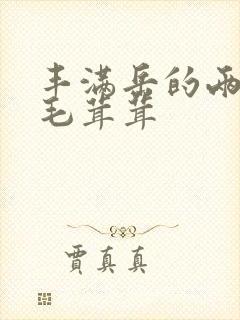 丰满岳的两
毛茸茸
贾真真